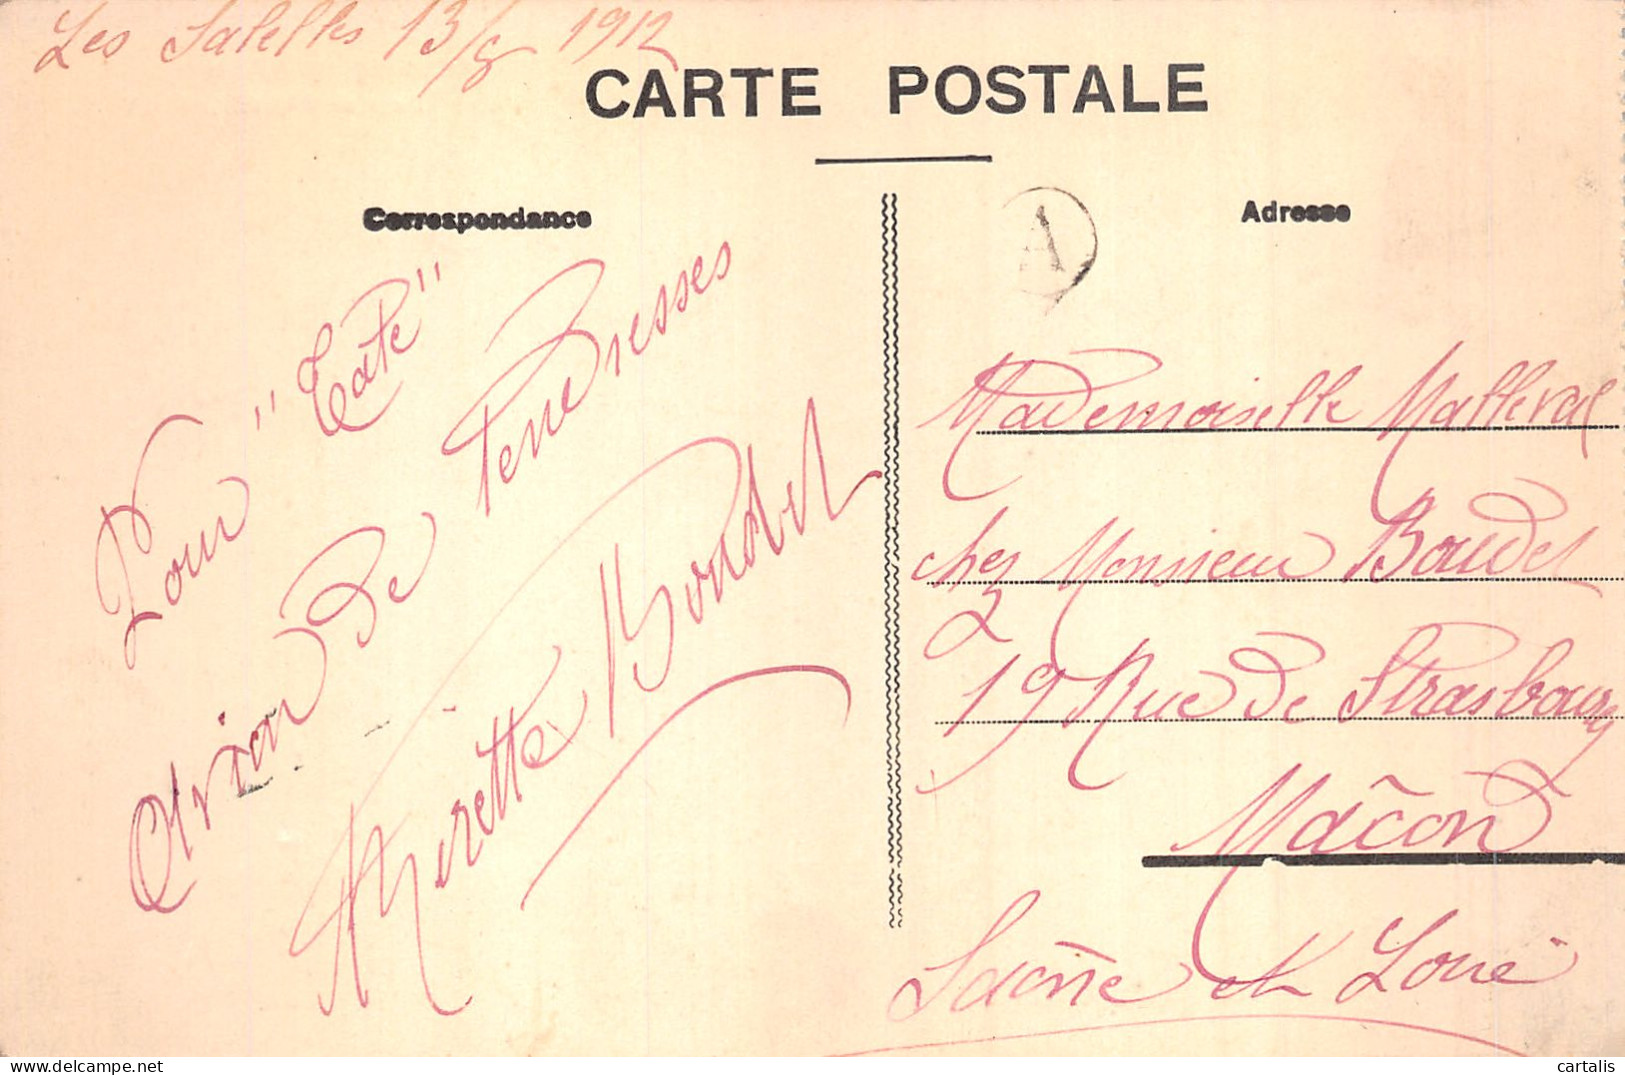 Les Salelles 13/8 1912
CARTE POSTALE
Correspondance
Adresse
A
Pour "Tate"
de Tendresses
Mirette Boudet
Mademoiselle Malleval
chez Monsieur Boudet
19 Rue de Strasbourg
Mâcon
Saône et Loire
cartalis